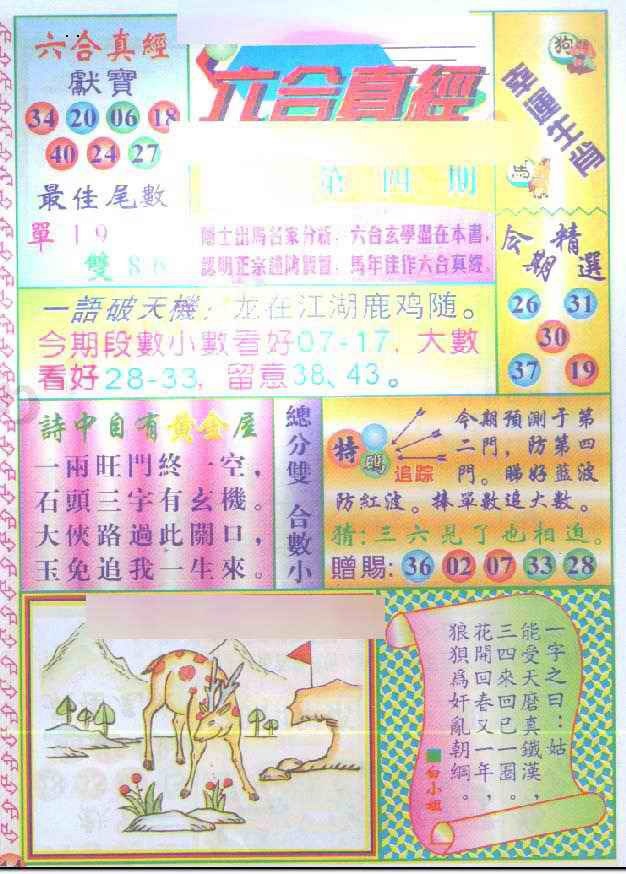 六合真經
獻寶
34 20 06 18
40 24 27
最佳尾數
單 19
雙 86
六合真經
第四期
隱士出馬名家分新，六合玄學盡在本書，
馬年佳作六合真經。
狗
幸運生肖
馬
今期精選
26 31
30
37 19
一語破天機：龙在江湖鹿鸡随。
今期段數小數看好07-17，大數
看好28-33，留意38、43。
詩中自有黃金屋
一兩旺門終一空，
石頭三字有玄機。
大俠路過此關口，
玉兔追我一生來。
總分雙 合數小
特碼追踪
今期預測于第
二門，防第四
門。睇好蓝波
防紅波。捧單數追大數。
猜：三六見了也相迫。
贈賜：36 02 07 33 28
一字之曰：姑
能受天磨真鐵漢，
三四來回已一圈。
花開回春又一年，
狼狽爲奸亂朝綱。
白小姐